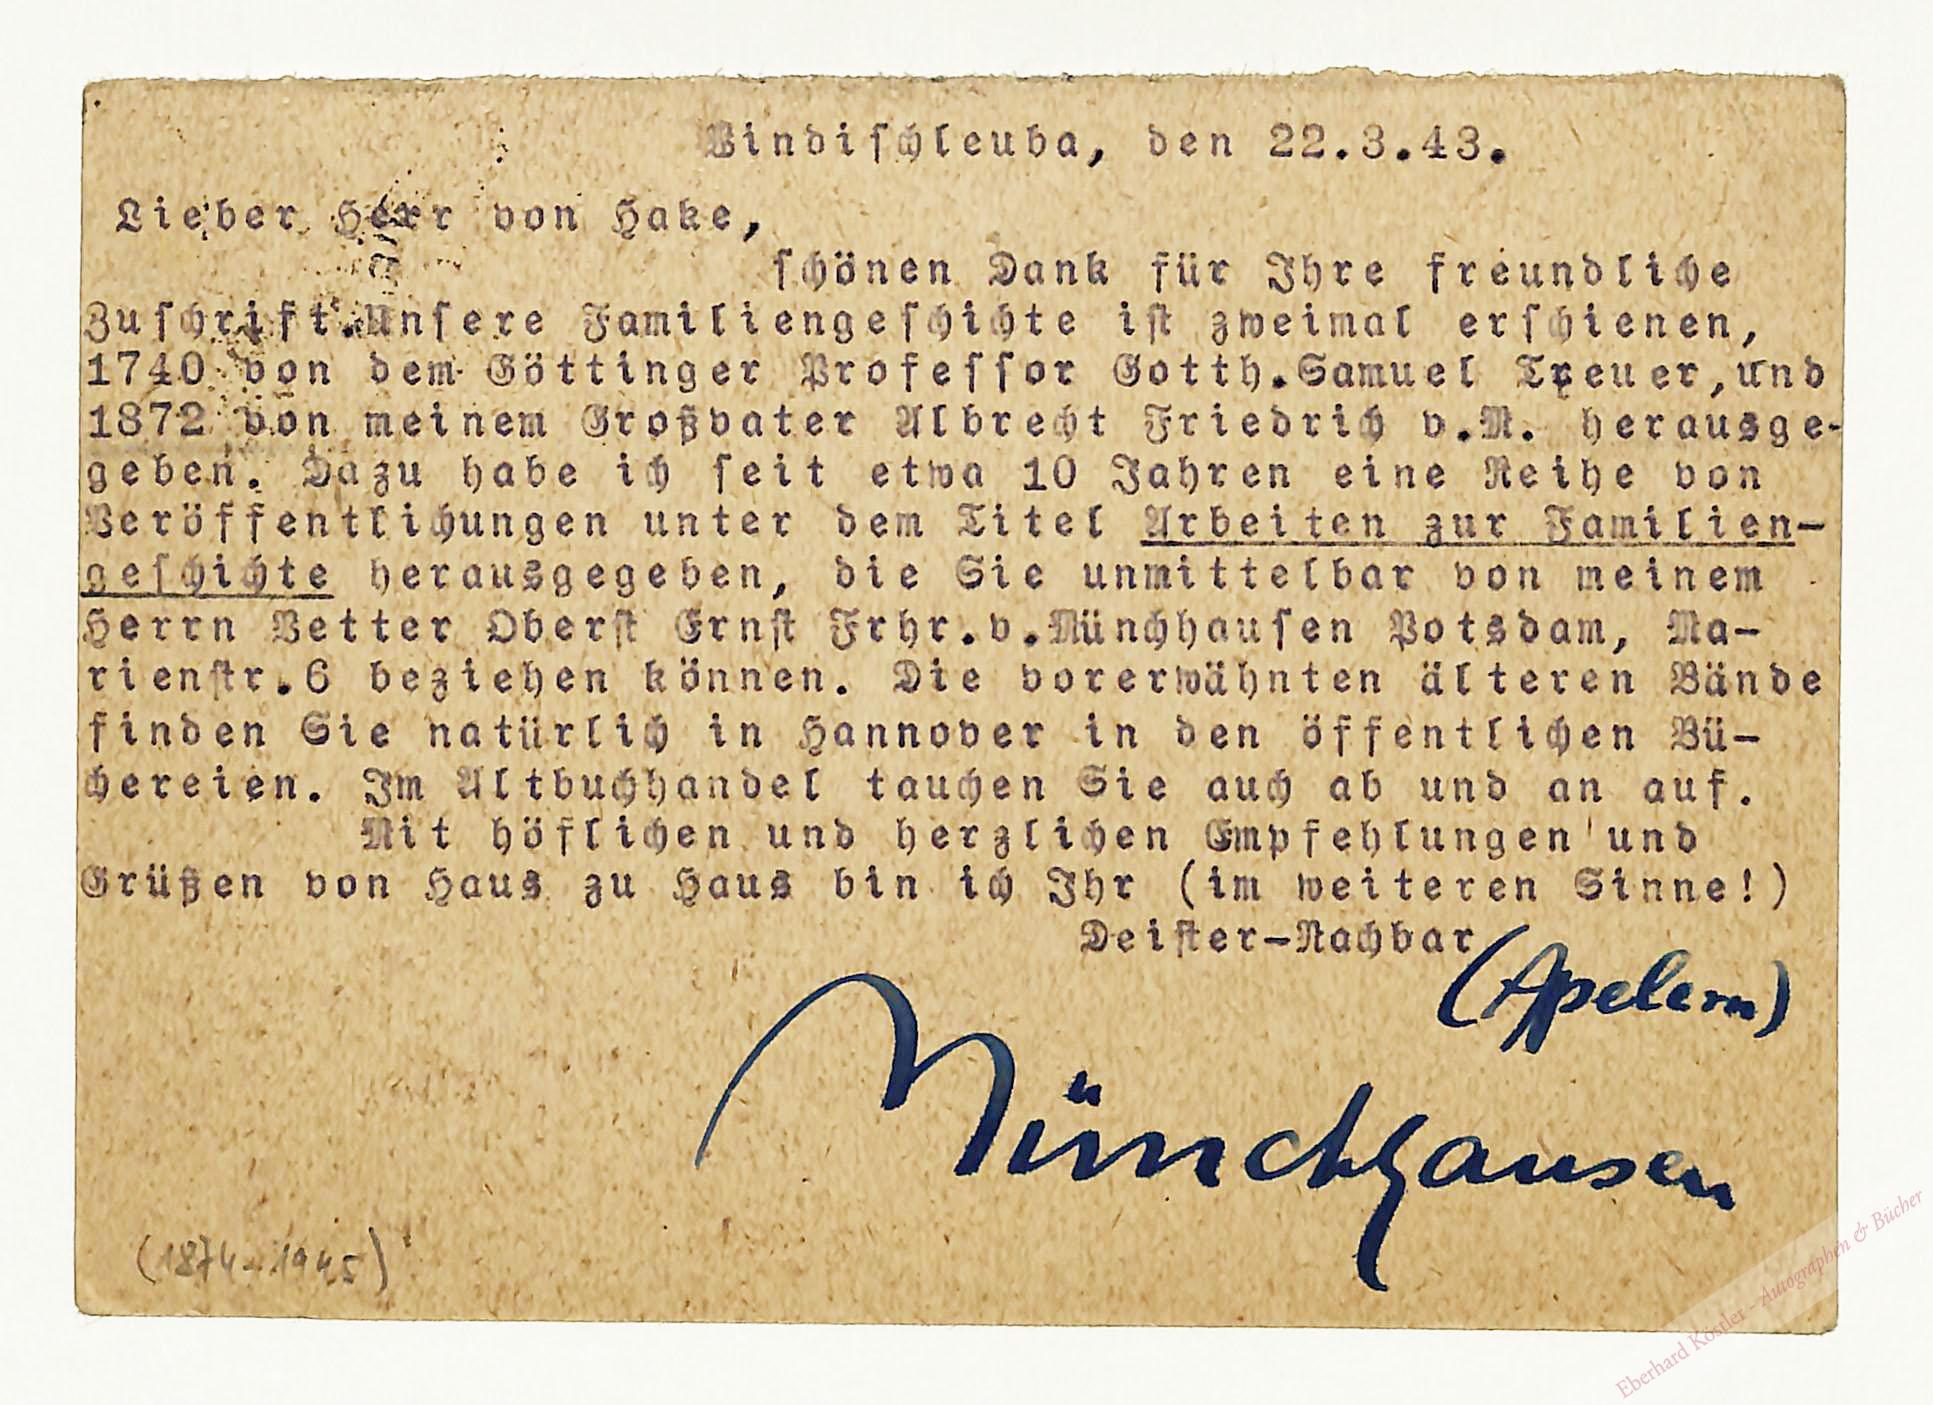 Windischleuba, den 22.3.43.
Lieber Herr von Hake,
schönen Dank für Ihre freundliche
Zuschrift.Unsere Familiengeschichte ist zweimal erschienen,
1740 von dem Göttinger Professor Gotth.Samuel Treuer,und
1872 von meinem Großvater Albrecht Friedrich v.M. herausge-
geben. Dazu habe ich seit etwa 10 Jahren eine Reihe von
Veröffentlichungen unter dem Titel Arbeiten zur Familien-
geschichte herausgegeben, die Sie unmittelbar von meinem
Herrn Vetter Oberst Ernst Frhr.v.Münchhausen Potsdam, Ma-
rienstr.6 beziehen können. Die vorerwähnten älteren Bände
finden Sie natürlich in Hannover in den öffentlichen Bü-
chereien. Im Altbuchhandel tauchen Sie auch ab und an auf.
Mit höflichen und herzlichen Empfehlungen und
Grüßen von Haus zu Haus bin ich Ihr (im weiteren Sinne!)
Deister-Nachbar
(Apelern)
Münchhausen
(1874-1945)
Eberhard Köstler - Autographen & Bücher